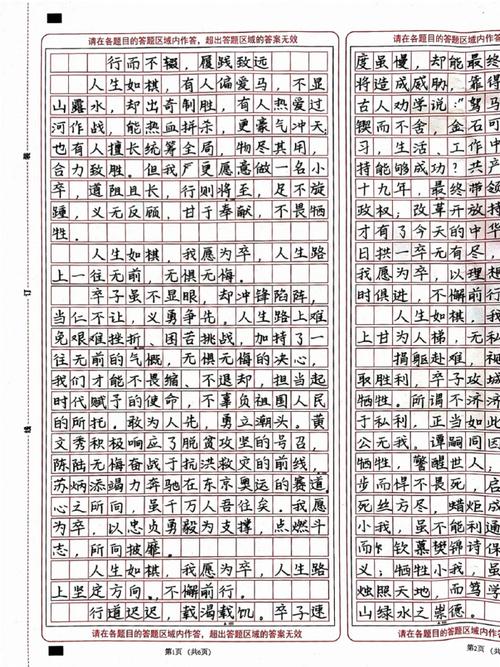 请在各题目的答题区域内作答，超出答题区域的答案无效
行而不辍，履践致远
人生如棋，有人偏爱马，不显
山露水，却出奇制胜，有人热爱过
河作战，能热血拼杀，更豪气冲天；
也有人擅长统筹全局，物尽其用，
合力致胜。但我严更愿意做一名小
卒，道阻且长，行则将至，足不旋
踵，义无反顾，甘于奉献，不畏牺
牲。
人生如棋，我愿为卒，人生路
上一往无前，无惧无悔。
卒子虽不显眼，却冲锋陷阵，
当仁不让，义勇争先。人生路上难
免艰难挫折、困苦挑战，加持了一
往无前的气概，无惧无悔的决心，
我们才能不畏缩、不退却，担当起
时代赋予的使命，不辜负祖国人民
的所托。敢为人先，勇立潮头。黄
文秀积极响应了脱贫攻坚的号召，
陈陆无悔奋战于抗洪救灾的前线，
苏炳添竭力奔驰在东京奥运的赛道。
心之所向，虽千万人吾往矣。我愿
为卒，以忠贞勇毅为支撑，点燃斗
志，所向披靡。
人生如棋，我愿为卒，人生路
上坚定方向，不懈前行。
行道迟迟，载渴载饥。卒子速
请在各题目的答题区域内作答，超出答题区域的答案无效
第1页（共6页）
装
订
线
请在各题目的答题区域内作
度虽慢，却能最终
将造成威胁，靠得
古人劝学说："驽马
锲而不舍，金石可
习，生活、工作中
持能够成功？共产
十九年，最终带领
政权；改革开放持
才有了今天的中华
日拱一卒无有尽，
我愿为卒，以理想
时俱进，不懈前行
人生如棋，我
上甘为人梯，无私
捐躯赴难，视
取胜利，卒子攻城
牺牲。所谓不济济
于私利，正当如此
公无我。谭嗣同因
牺牲，警醒世人，
步而悍不畏死，启
死丝方尽，蜡炬成
小我，虽不能利通
而"钦慕樊锦诗保
义；牺牲小我，虽
烛照天地，而笃学
山绿水之崇德。
请在各题目的答题区域内作
第2页（共